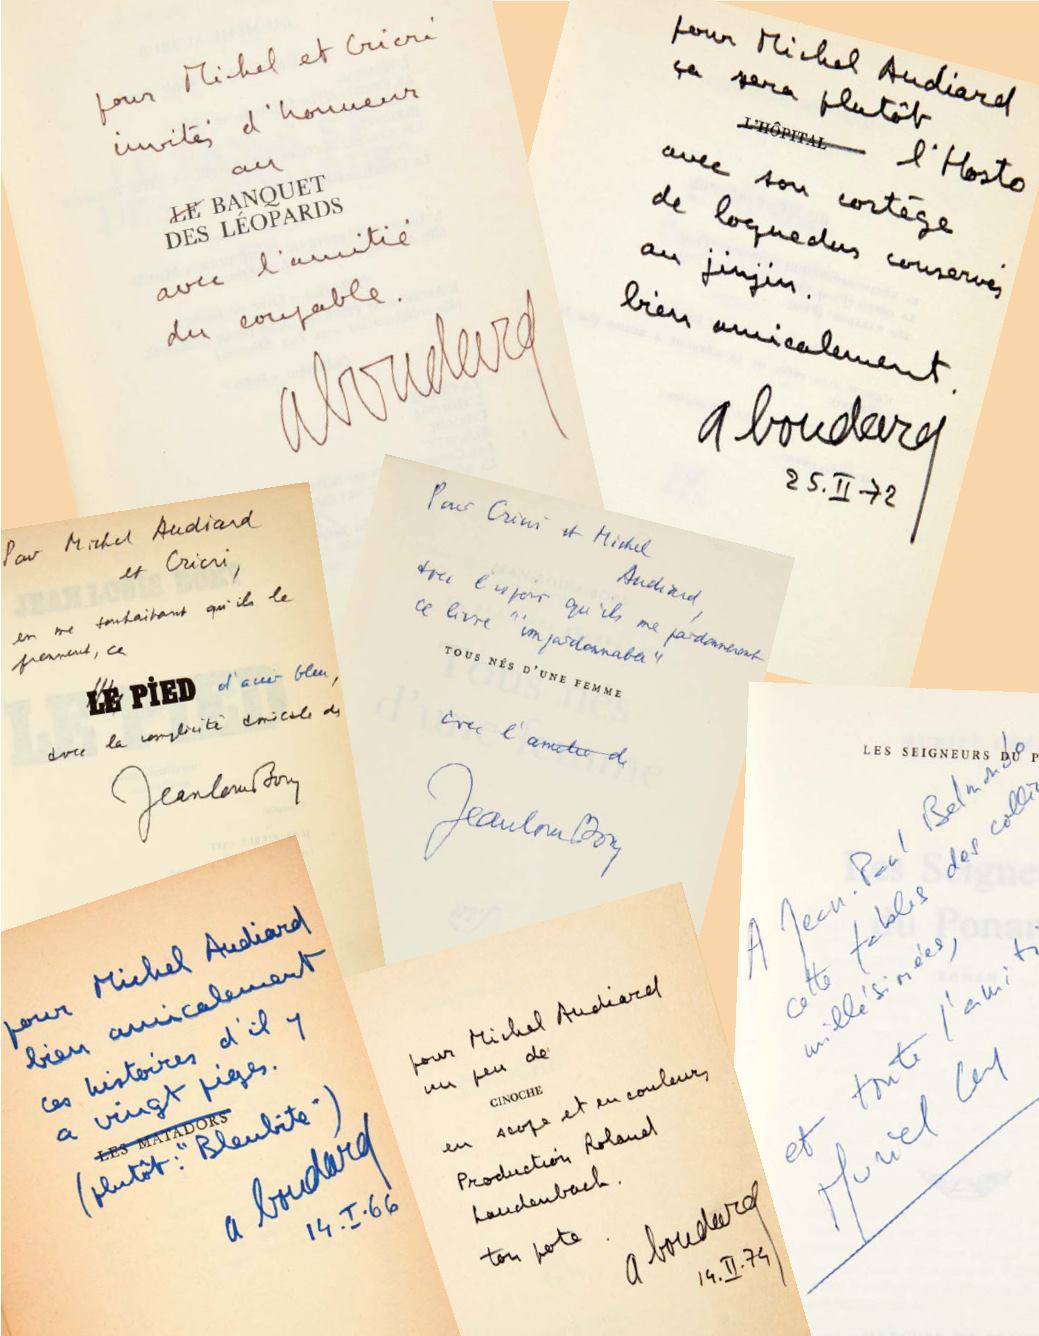 pour Michel et Cricri
invités d'honneur
au
LE BANQUET
DES LÉOPARDS
avec l'amitié
du coupable.
aboudard
pour Michel Audiard
ça sera plutôt
L'HÔPITAL l'Hosto
avec son cortège
de loquedus conservés
au jinjin.
bien amicalement.
aboudard
25.II-72
Pour Michel Audiard
et Cricri,
en me souhaitant qu'ils le
prennent, ce
LE PIED d'azur bleu,
avec la complicité amicale de
Jean Louis Bory
Pour Cricri et Michel
Audiard,
avec l'espoir qu'ils me pardonneront
ce livre "impardonnable"
TOUS NÉS D'UNE FEMME
avec l'amitié de
Jean Louis Bory
LES SEIGNEURS DU P
A Jean-Paul Belmondo
cette fables des colli
millésimées,
et toute l'ami
Muriel Cerf
pour Michel Audiard
bien amicalement
ces histoires d'il y
a vingt piges.
LES MATADORS
(plutôt: "Bleubite")
aboudard
14.I-66
pour Michel Audiard
un peu de
CINOCHE
en scope et en couleurs
Production Roland
Laudenbach.
ton pote.
aboudard
14.II-74